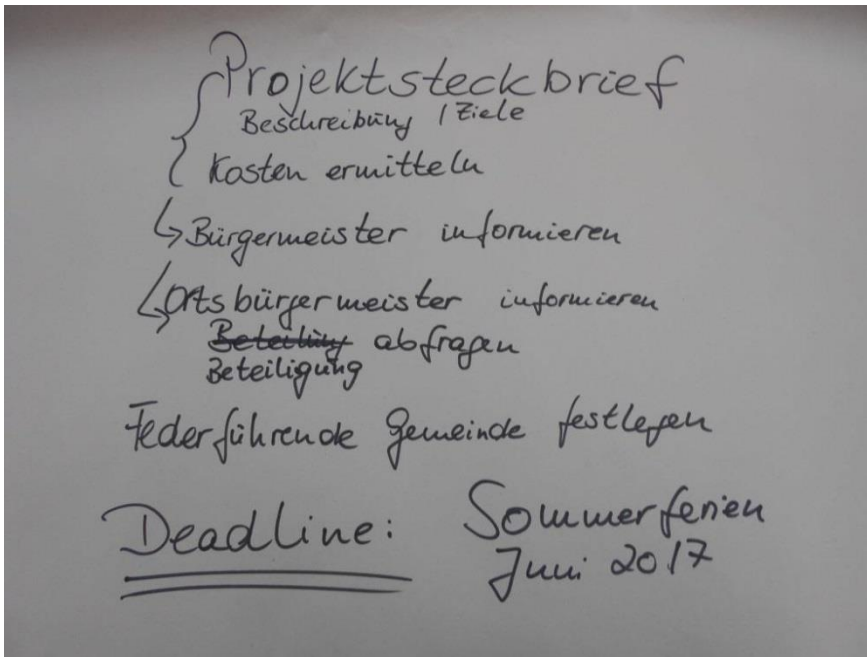 Projektsteckbrief
Beschreibung / Ziele
Kosten ermitteln
↳ Bürgermeister informieren
↳ Ortsbürgermeister informieren
Beteiligung abfragen
Federführende Gemeinde festlegen
Deadline: Sommerferien
Juni 2017